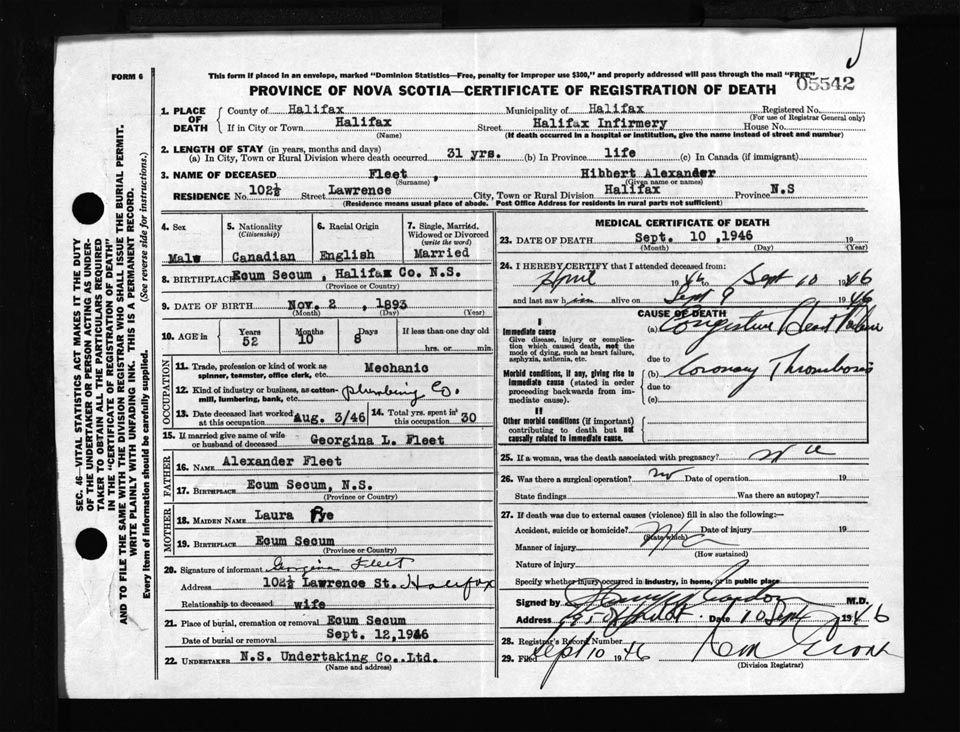 FORM 6
This form if placed in an envelope, marked "Dominion Statistics—Free, penalty for improper use $300," and properly addressed will pass through the mail "FREE"
05542
PROVINCE OF NOVA SCOTIA—CERTIFICATE OF REGISTRATION OF DEATH
SEC. 46—VITAL STATISTICS ACT MAKES IT THE DUTY
OF THE UNDERTAKER OR PERSON ACTING AS UNDER-
TAKER TO OBTAIN ALL THE PARTICULARS REQUIRED
IN THE "CERTIFICATE OF REGISTRATION OF DEATH"
AND TO FILE THE SAME WITH THE DIVISION REGISTRAR WHO SHALL ISSUE THE BURIAL PERMIT.
WRITE PLAINLY WITH UNFADING INK. THIS IS A PERMANENT RECORD.
Every item of information should be carefully supplied. (See reverse side for instructions.)
1. PLACE OF DEATH
County of Halifax Municipality of Halifax Registered No.
(For use of Registrar General only)
If in City or Town Halifax Street Halifax Infirmery House No.
(Name) (If death occurred in a hospital or institution, give the name instead of street and number)
2. LENGTH OF STAY (in years, months and days)
(a) In City, Town or Rural Division where death occurred 31 yrs. (b) In Province life (c) In Canada (if immigrant)
3. NAME OF DECEASED Fleet, Hibbert Alexander
(Surname) (Given name or names)
RESIDENCE No. 102½ Street Lawrence City, Town or Rural Division Halifax Province N.S
(Residence means usual place of abode. Post Office Address for residents in rural parts not sufficient)
4. Sex
Male
5. Nationality
(Citizenship)
Canadian
6. Racial Origin
English
7. Single, Married,
Widowed or Divorced
(write the word)
Married
8. BIRTHPLACE Ecum Secum, Halifax Co. N.S.
(Province or Country)
9. DATE OF BIRTH Nov. 2, 1893
(Month) (Day) (Year)
10. AGE in
Years 52
Months 10
Days 8
If less than one day old
hrs. or min.
OCCUPATION
11. Trade, profession or kind of work as
spinner, teamster, office clerk, etc. Mechanic
12. Kind of industry or business, as cotton-
mill, lumbering, bank, etc. plumbing Co.
13. Date deceased last worked
at this occupation Aug. 3/46
14. Total yrs. spent in
this occupation 30
15. If married give name of wife
or husband of deceased Georgina L. Fleet
FATHER
16. NAME Alexander Fleet
17. BIRTHPLACE Ecum Secum, N.S.
(Province or Country)
MOTHER
18. MAIDEN NAME Laura Pye
19. BIRTHPLACE Ecum Secum
(Province or Country)
20. Signature of informant Georgina Fleet
Address 102½ Lawrence St. Halifax
Relationship to deceased wife
21. Place of burial, cremation or removal Ecum Secum
Date of burial or removal Sept. 12, 1946
22. UNDERTAKER N.S. Undertaking Co., Ltd.
(Name and address)
MEDICAL CERTIFICATE OF DEATH
23. DATE OF DEATH Sept. 10, 1946 19
(Month) (Day) (Year)
24. I HEREBY CERTIFY that I attended deceased from:
April 1946 to Sept 10 1946
and last saw him alive on Sept 9 1946
CAUSE OF DEATH
I
Immediate cause
Give disease, injury or complica-
tion which caused death, not the
mode of dying, such as heart failure,
asphyxia, asthenia, etc.
(a) Congestive Heart Failure
due to
Morbid conditions, if any, giving rise to
immediate cause (stated in order
proceeding backwards from im-
mediate cause).
(b) Coronary Thrombosis
due to
(c)
II
Other morbid conditions (if important)
contributing to death but not
causally related to immediate cause.
25. If a woman, was the death associated with pregnancy?
26. Was there a surgical operation? no Date of operation 19
State findings Was there an autopsy?
27. If death was due to external causes (violence) fill in also the following:—
Accident, suicide or homicide? Date of injury 19
(State which)
Manner of injury
(How sustained)
Nature of injury
Specify whether injury occurred in industry, in home, or in public place
Signed by M.D.
Address Date 10 Sept 1946
28. Registrar's Record Number
29. Filed Sept 10 1946
(Division Registrar)